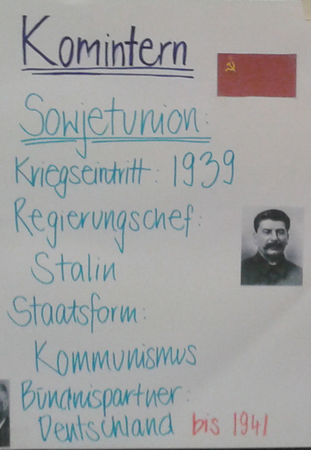 Komintern
Sowjetunion:
Kriegseintritt: 1939
Regierungschef:
Stalin
Staatsform:
Kommunismus
Bündnispartner:
Deutschland bis 1941